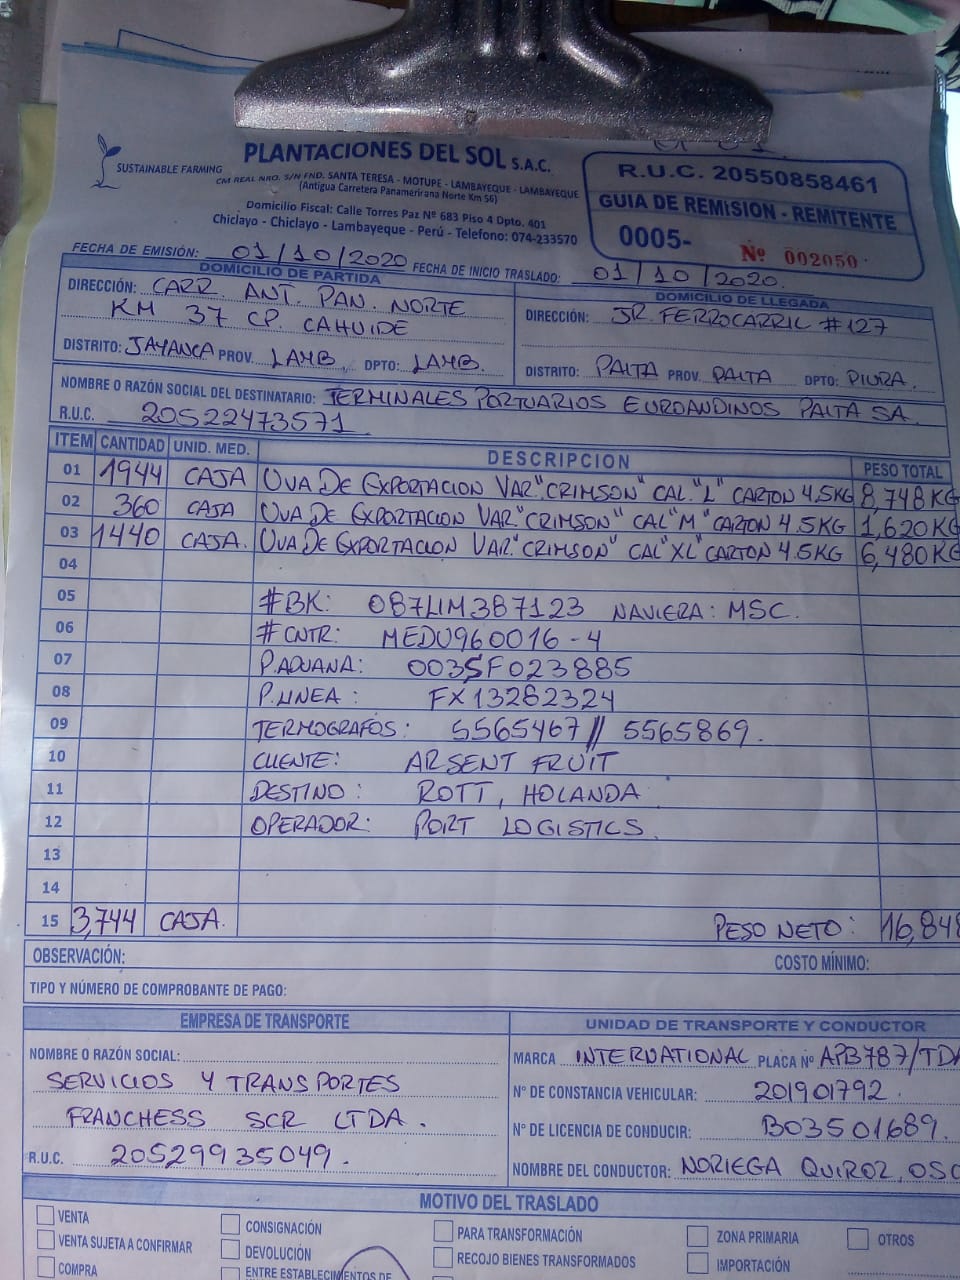 SUSTAINABLE FARMING
PLANTACIONES DEL SOL S.A.C.
CM REAL NRO. S/N FND. SANTA TERESA - MOTUPE - LAMBAYEQUE - LAMBAYEQUE
(Antigua Carretera Panamerirana Norte Km 56)
Domicilio Fiscal: Calle Torres Paz Nº 683 Piso 4 Dpto. 401
Chiclayo - Chiclayo - Lambayeque - Perú - Telefono: 074-233570
R.U.C. 20550858461
GUIA DE REMISION - REMITENTE
0005- Nº 002050
FECHA DE EMISIÓN: 01/10/2020 FECHA DE INICIO TRASLADO: 01/10/2020.
DOMICILIO DE PARTIDA
DIRECCIÓN: CARR. ANT. PAN. NORTE
KM 37 CP. CAHUIDE
DISTRITO: JAYANCA PROV. LAMB. DPTO: LAMB.
DOMICILIO DE LLEGADA
DIRECCIÓN: JR. FERROCARRIL #127
DISTRITO: PAITA PROV. PAITA DPTO: PIURA.
NOMBRE O RAZÓN SOCIAL DEL DESTINATARIO: TERMINALES PORTUARIOS EUROANDINOS PAITA SA.
R.U.C. 20522473571
ITEM CANTIDAD UNID. MED. DESCRIPCION PESO TOTAL
01 1944 CAJA UVA DE EXPORTACION VAR. "CRIMSON" CAL. "L" CARTON 4.5KG 8,748KG
02 360 CAJA UVA DE EXPORTACION VAR "CRIMSON" CAL "M" CARTON 4.5KG 1,620KG
03 1440 CAJA. UVA DE EXPORTACION VAR. "CRIMSON" CAL "XL" CARTON 4.5KG 6,480KG
04
05 #BK: 087LIM387123 NAVIERA: MSC.
06 #CNTR: MEDU960016-4
07 P.ADUANA: 0035F023885
08 P.LINEA: FX13282324
09 TERMOGRAFOS: 5565467 // 5565869.
10 CLIENTE: ARSENT FRUIT
11 DESTINO: ROTT, HOLANDA
12 OPERADOR: PORT LOGISTICS.
13
14
15 3,744 CAJA. PESO NETO: 16,848
OBSERVACIÓN: COSTO MÍNIMO:
TIPO Y NÚMERO DE COMPROBANTE DE PAGO:
EMPRESA DE TRANSPORTE
NOMBRE O RAZÓN SOCIAL:
SERVICIOS Y TRANSPORTES
FRANCHESS SCR LTDA.
R.U.C. 20529935049.
UNIDAD DE TRANSPORTE Y CONDUCTOR
MARCA INTERNATIONAL PLACA Nº APB787/TDA
N° DE CONSTANCIA VEHICULAR: 201901792.
N° DE LICENCIA DE CONDUCIR: B03501689.
NOMBRE DEL CONDUCTOR: NORIEGA QUIROZ, OSC
MOTIVO DEL TRASLADO
VENTA
VENTA SUJETA A CONFIRMAR
COMPRA
CONSIGNACIÓN
DEVOLUCIÓN
ENTRE ESTABLECIMIENTOS DE
PARA TRANSFORMACIÓN
RECOJO BIENES TRANSFORMADOS
ZONA PRIMARIA
IMPORTACIÓN
OTROS